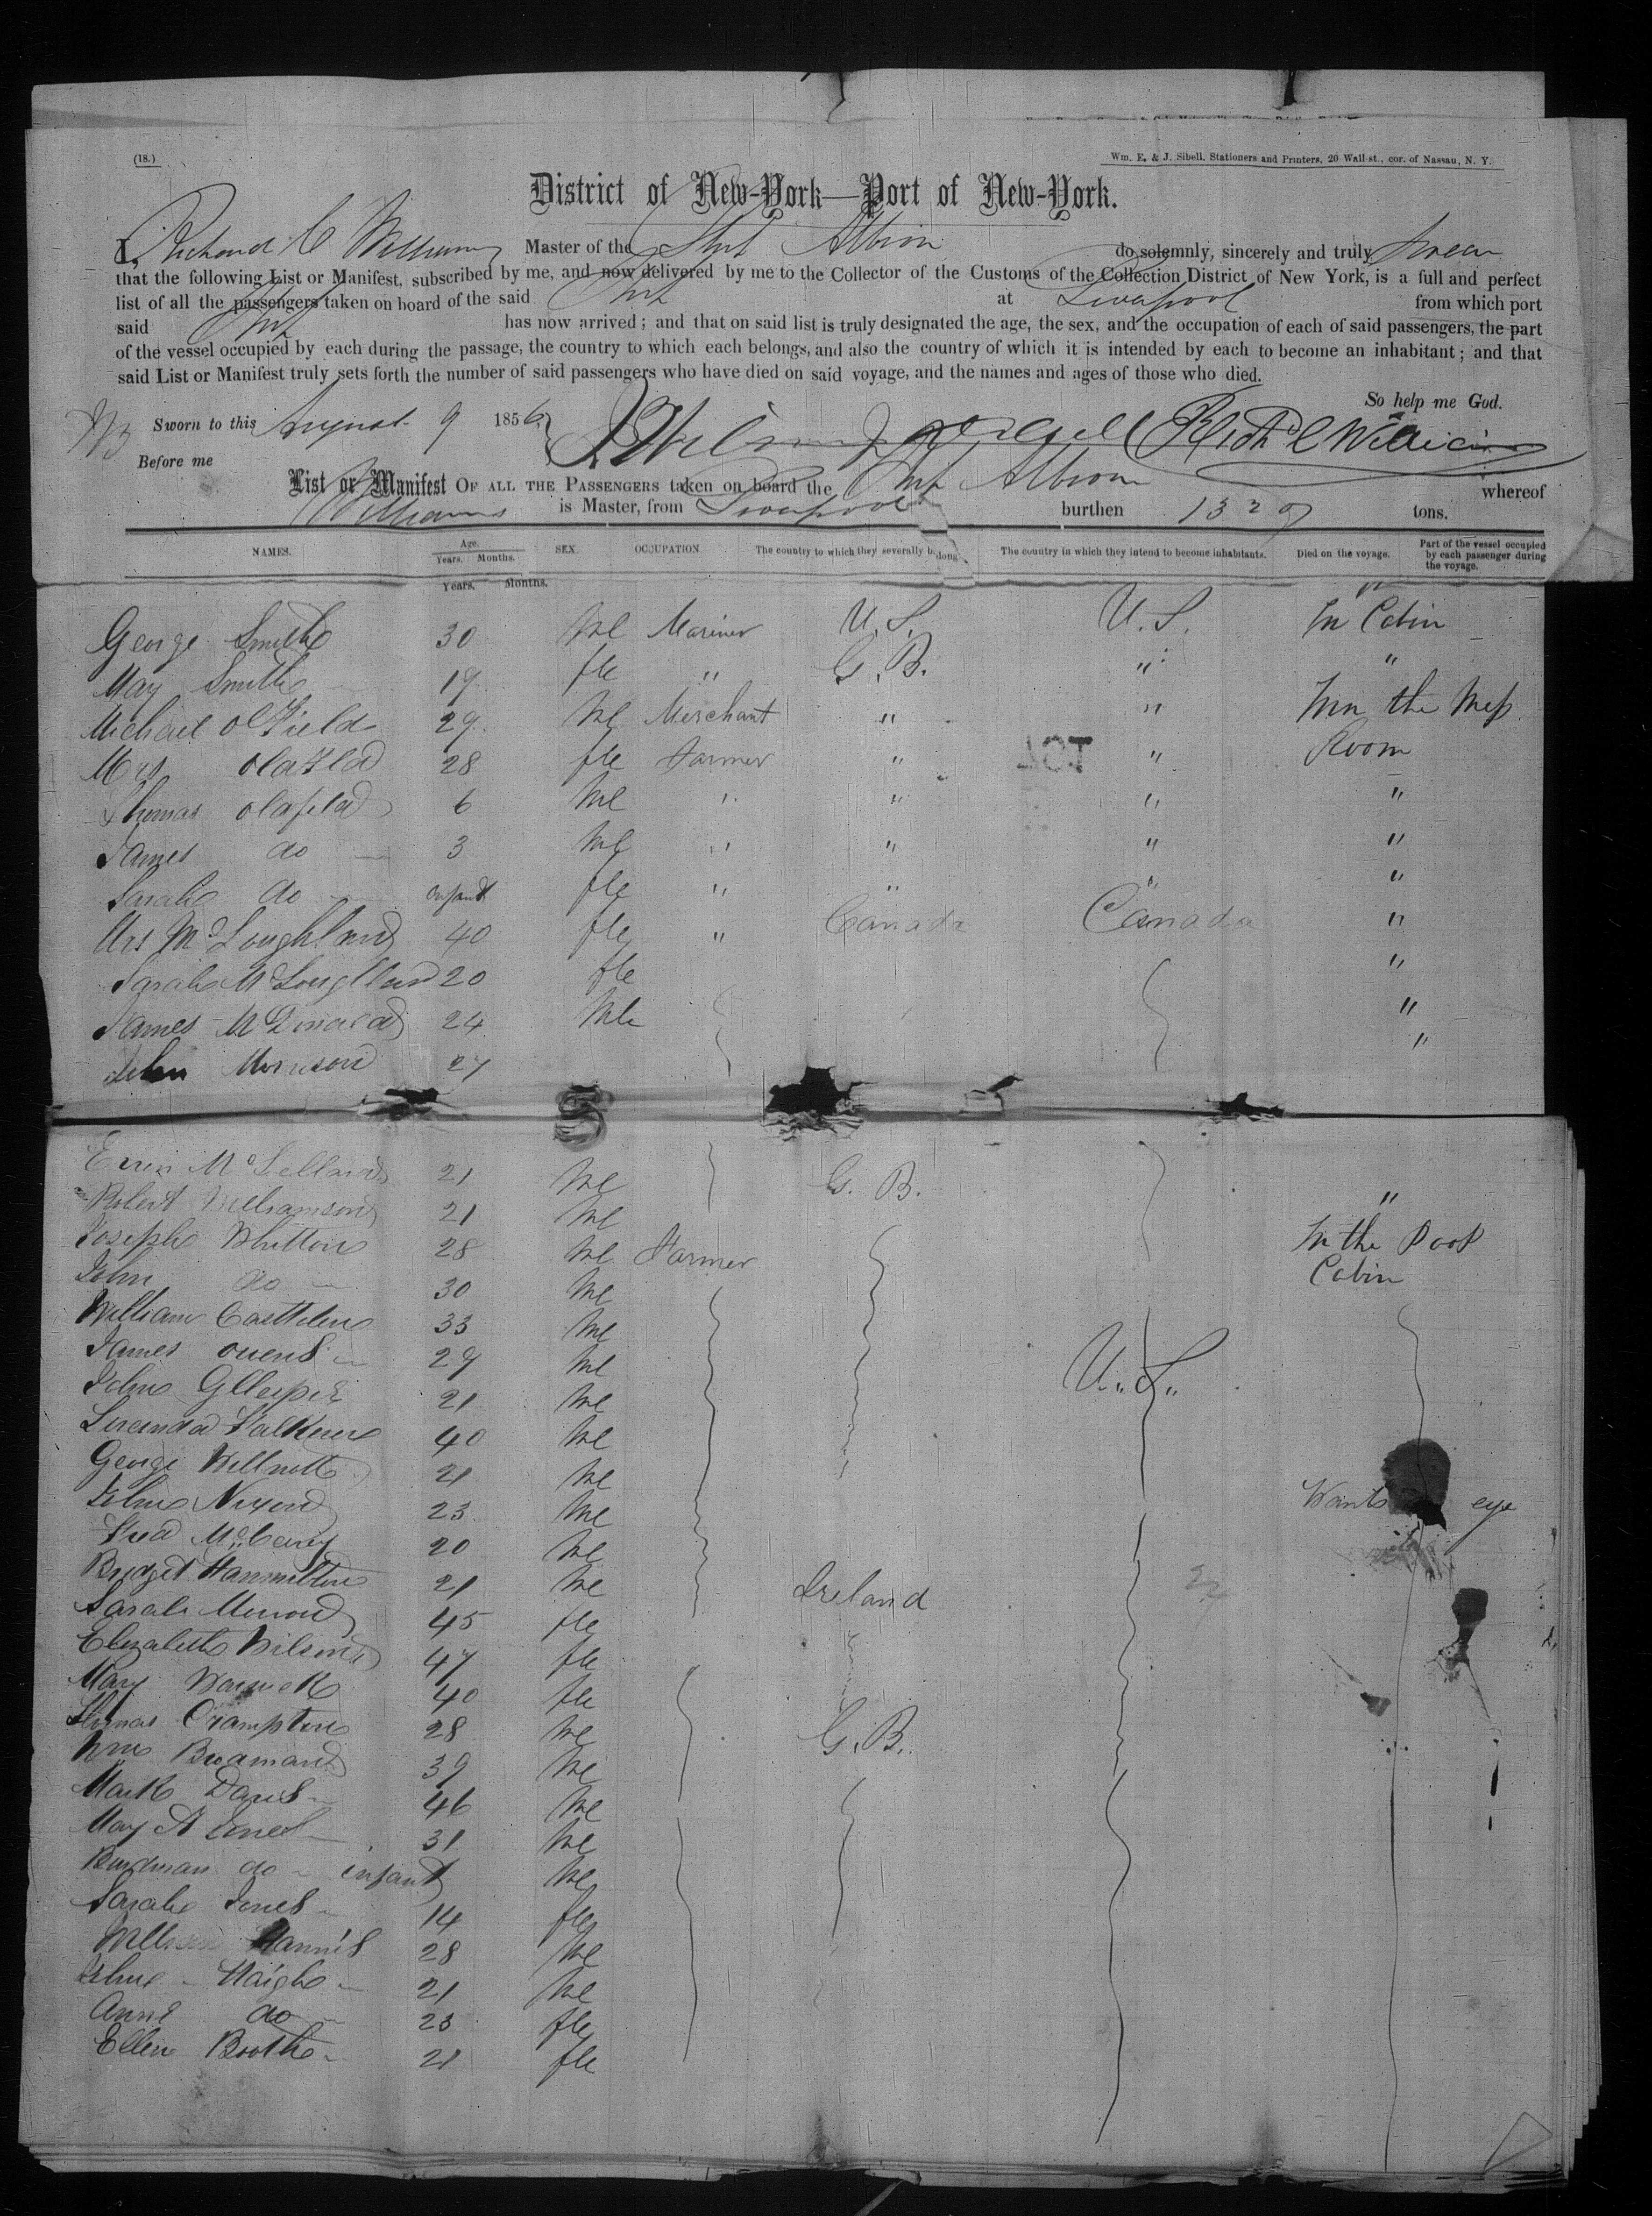 (18.)
Wm. E. & J. Sibell, Stationers and Printers, 20 Wall-st., cor. of Nassau, N. Y.
District of New-York—Port of New-York.
I, Richard C Williams Master of the Ship Albion do solemnly, sincerely and truly swear
that the following List or Manifest, subscribed by me, and now delivered by me to the Collector of the Customs of the Collection District of New York, is a full and perfect
list of all the passengers taken on board of the said Ship at Liverpool from which port
said Ship has now arrived; and that on said list is truly designated the age, the sex, and the occupation of each of said passengers, the part
of the vessel occupied by each during the passage, the country to which each belongs, and also the country of which it is intended by each to become an inhabitant; and that
said List or Manifest truly sets forth the number of said passengers who have died on said voyage, and the names and ages of those who died.
So help me God.
Sworn to this August 9 1856 Richd C Williams
Before me
List or Manifest OF ALL THE PASSENGERS taken on board the Ship Albion whereof
Williams is Master, from Liverpool burthen 1329 tons.
NAMES. Age. Years. Months. SEX. OCCUPATION The country to which they severally belong. The country in which they intend to become inhabitants. Died on the voyage. Part of the vessel occupied by each passenger during the voyage.
Years. Months.
George Smith 30 Me Mariner U.S. U.S. In Cabin
May Smith 19 fle " G.B. " "
Michael oldfield 29 Me Merchant " " Inn the Mess
Mrs oldfild 28 fle Farmer " " Room
Thomas oldfild 6 Me " " " "
James do 3 Me " " " "
Sarah do infant fle " " " "
Mrs McLoughland 40 fle " Canada Canada "
Sarah McLoughland 20 fle "
James McDonald 24 Me "
John Morrison 27 "
McLelland 21 Me G. B.
Robert Williamson 21 Me "
Joseph Whitton 28 Me Farmer In the Poop
John do 30 Me Cabin
William 33 Me
James owens 27 Me U.S.
John Gllespie 21 Me
Falkner 40 Me
George Willmott 21 Me
John Nixon 23 Me Wants eye
Fred 20 Me
Bridget Hammilton 21 Me Ireland
Sarah 45 fle
Elizabeth Wilson 47 fle
Mary Warwick 40 fle
Thomas Crampton 28 Me G.B.
Wm 39 Me
Mark Davis 46 Me
May A Jones 31 Me
do infant Me
Sarah Jones 14 fle
William Hannis 28 Me
John Haigh 21 Me
Anne do 23 fle
Ellen Booth 21 fle